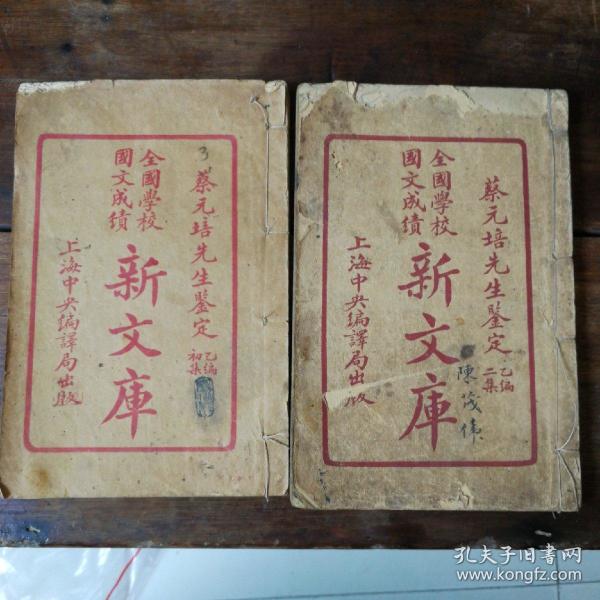 3
蔡元培先生鑒定
乙編
初集
全國學校
國文成績
新文庫
上海中央編譯局出版
蔡元培先生鑒定
乙編
二集
全國學校
國文成績
新文庫
上海中央編譯局出版
陳茂偉
孔夫子旧書网
www.kongfz.com